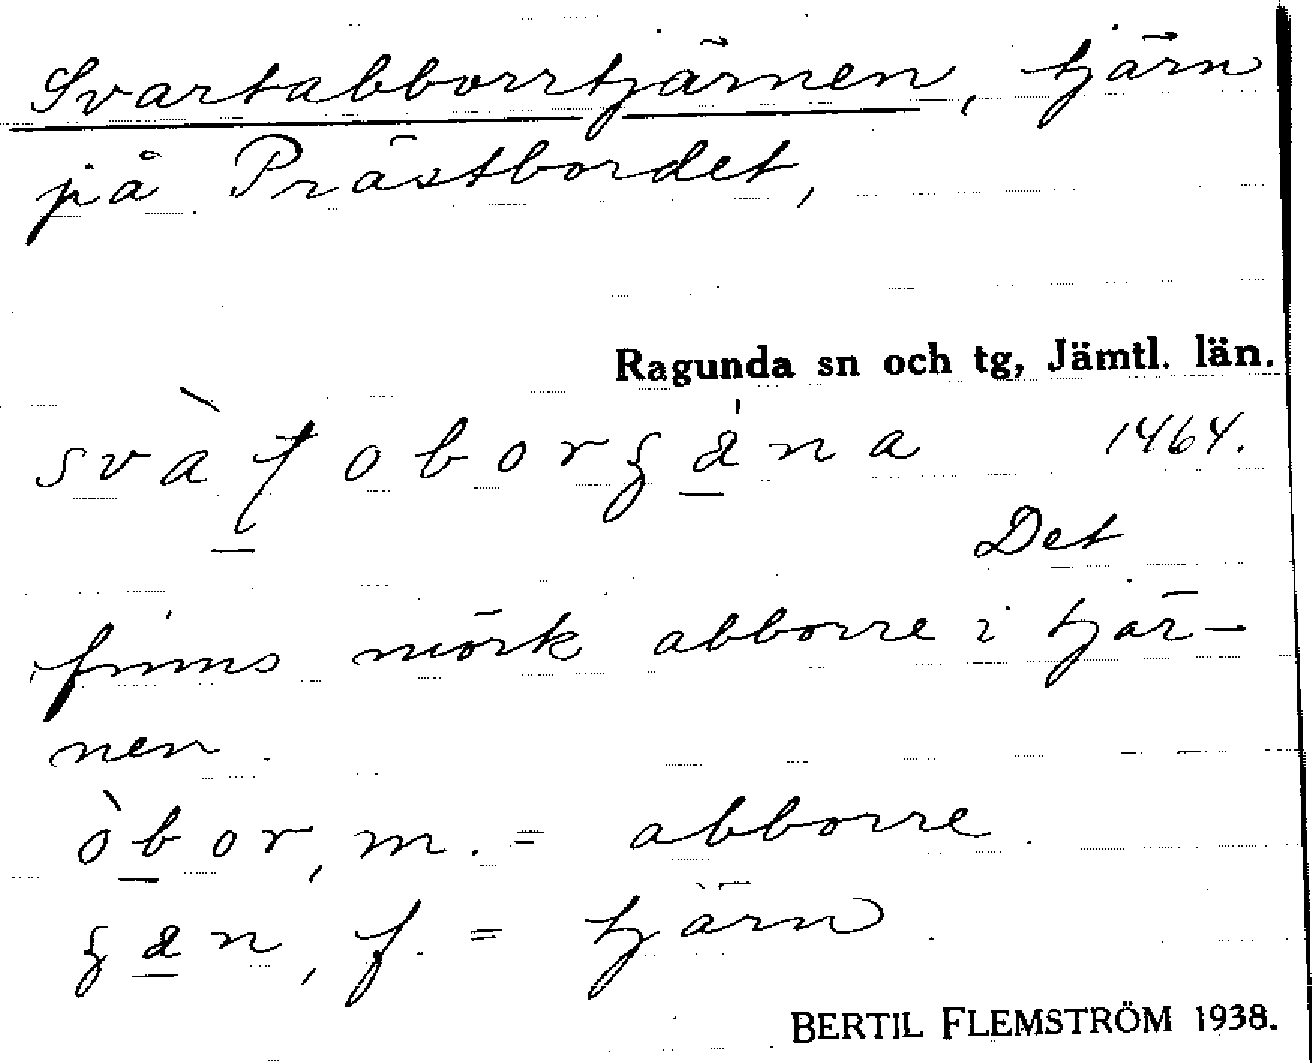 Svartabborrtjärnen, tjärn
på Prästbordet,
Ragunda sn och tg, Jämtl. län.
1464.
Det
finns mörk abborre i tjär-
nen.
òbor, m. = abborre.
f. = tjärn.
BERTIL FLEMSTRÖM 1938.